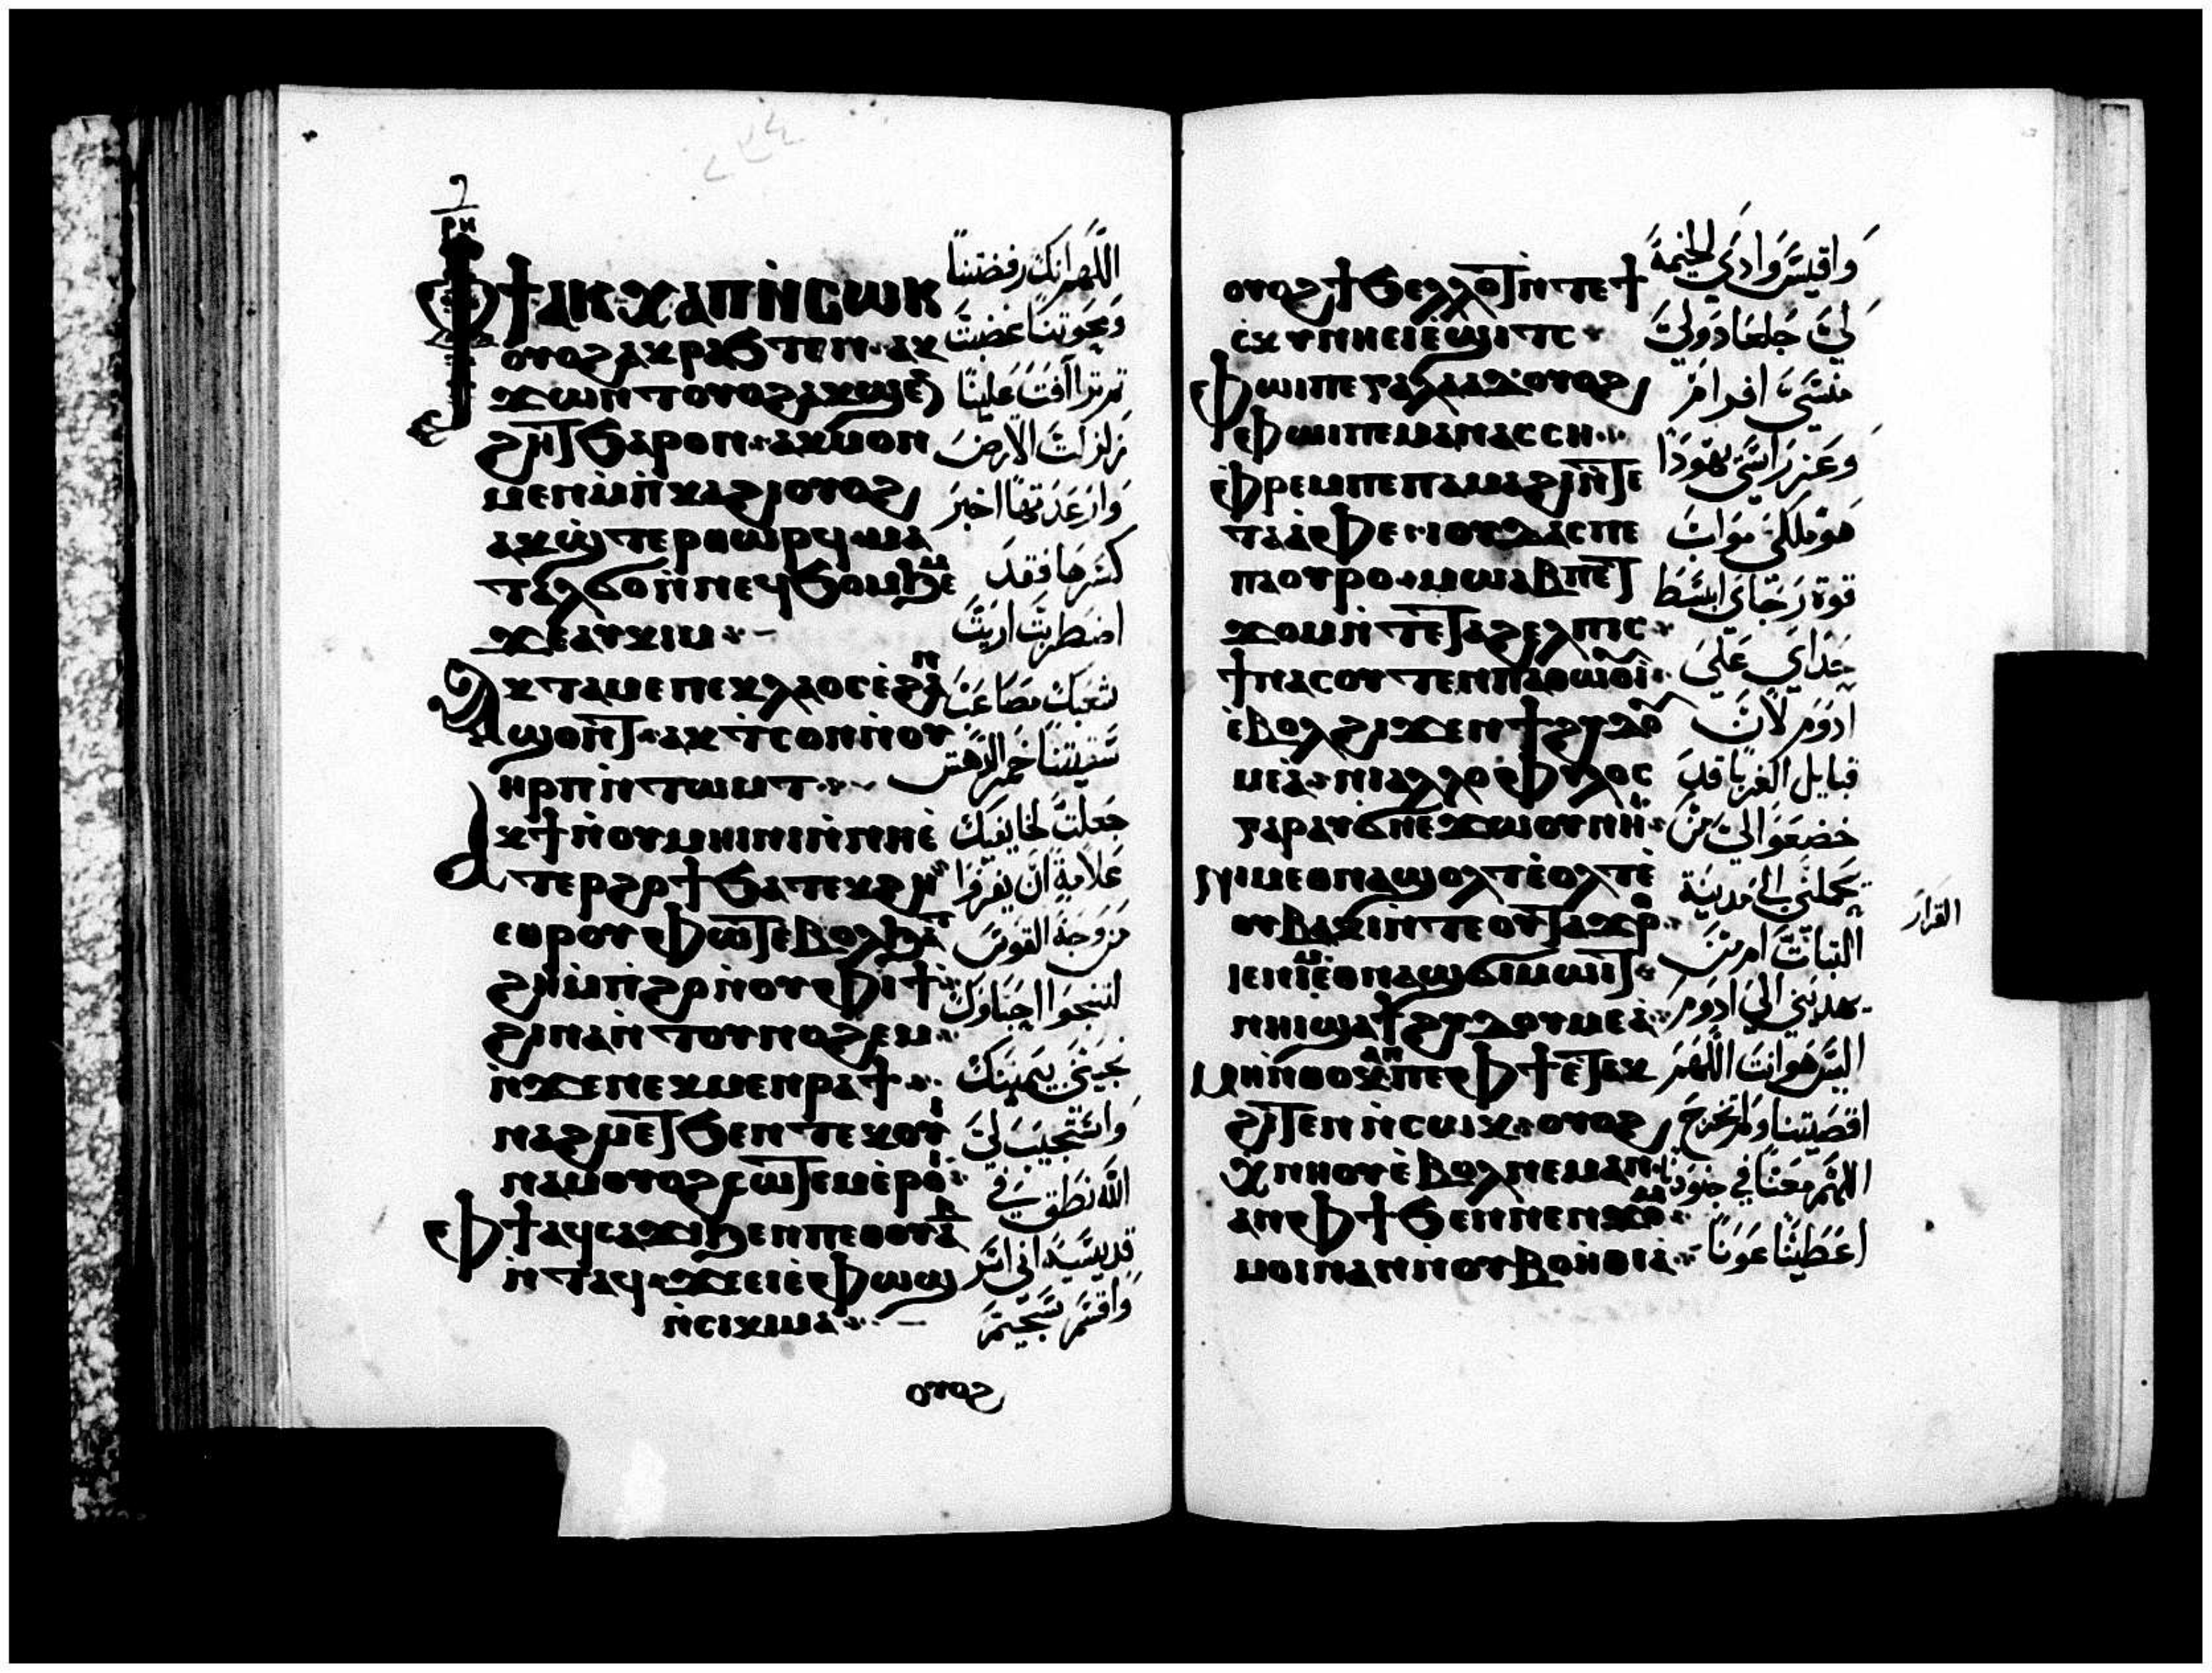 ⲣⲏ
ⲫϯ ⲁⲕⲭⲁⲡⲛ̀ⲥⲱⲕ
ⲟⲩⲟϩ ⲁⲕⲣⲁϧⲧⲉⲛ ⲁⲕ
ϫⲱⲛⲧ ⲟⲩⲟϩ ⲁⲕϣⲉⲛ
ϩⲏⲧ ϧⲁⲣⲟⲛ ⲁⲕⲙⲟⲛ
ⲙⲉⲛ ⲙ̀ⲡⲕⲁϩⲓ ⲟⲩⲟϩ
ⲁⲕϣ̀ⲧⲉⲣⲑⲱⲣϥ ⲙⲁ
ⲧⲁⲗϭⲟ ⲛ̀ⲛⲉϥϧⲟⲙϧⲉⲙ
ϫⲉ ⲁⲩⲕⲓⲙ
ⲁⲕⲧⲁⲙⲉ ⲡⲉⲕⲗⲁⲟⲥ ⲉ̀ϩⲁⲛ
ϣⲟⲛⲧ ⲁⲕⲧⲥⲟⲛ ⲛ̀ⲟⲩ
ⲏⲣⲡ ⲛ̀ⲧⲱⲙⲧ
ⲁⲕϯ ⲛ̀ⲟⲩⲙⲏⲓⲛⲓ ⲛ̀ⲛⲏⲉ̀
ⲧⲉⲣϩⲟϯ ϧⲁⲧⲉⲕϩⲏ
ⲉⲑⲣⲟⲩⲫⲱⲧ ⲉⲃⲟⲗ ϧⲁⲧ
ϩⲏ ⲙ̀ⲡϩⲟ ⲛ̀ⲟⲩⲫⲓϯ
ϩⲓⲛⲁ ⲛ̀ⲧⲟⲩⲛⲟϩⲉⲙ
ⲛ̀ϫⲉ ⲛⲉⲕⲙⲉⲛⲣⲁϯ
ⲛⲁϩⲙⲉⲧ ϧⲉⲛ ⲧⲉⲕⲟⲩⲓ̀
ⲛⲁⲙ ⲟⲩⲟϩ ⲥⲱⲧⲉⲙ ⲉ̀ⲣⲟⲓ
ⲫϯ ⲁϥⲥⲁϫⲓ ϧⲉⲛ ⲡⲉⲑⲟⲩⲁⲃ
ⲛ̀ⲧⲁϥ ϫⲉ ⲉⲓⲉ̀ⲫⲱϣ
ⲛ̀ⲥⲓⲕⲓⲙⲁ
ⲟⲩⲟϩ
اللهم انك رفضتنا
وبجوتنا غضبت
ثم ترأفت علينا
زلزلت الارض
وارعدتها اجبر
كسرها فقد
اضطربت اريت
شعبك مصاعبا
سقيتنا خمر الدهش
جعلت لخايفيك
علامة ان يفروا
من وجه القوس
لتنجوا احباوك
نجيني بيمينك
واستجيب لي
الله نطق في
قديسيه اني اسر
واقسم سجيم
ⲟⲩⲟϩ ϯϧⲉⲗⲗⲟⲧ ⲛ̀ⲧⲉ ϯ
ⲥⲕⲩⲛⲏ ⲉⲓⲉ̀ϣⲓⲧⲥ
ⲫⲱⲓ ⲡⲉ ⲅⲁⲗⲁⲁⲇ ⲟⲩⲟϩ
ⲫⲱⲓ ⲡⲉ ⲙⲁⲛⲁⲥⲥⲏ
ⲉ̀ⲫⲣⲉⲙ ⲡⲉ ⲡⲁⲙⲁϩⲓ ⲛ̀ⲧⲉ
ⲧⲁⲁ̀ⲫⲉ ⲓⲟⲩⲇⲁⲥ ⲡⲉ
ⲡⲁⲟⲩⲣⲟ ⲙⲱⲁⲃ ⲡⲉ ⲧ
ϫⲟⲙ ⲛ̀ⲧⲉ ⲧⲁϩⲉⲗⲡⲓⲥ
ϯⲛⲁⲥⲟⲩⲧⲉⲛ ⲡⲁⲑⲱⲟⲩⲓ̀
ⲉ̀ⲃⲟⲗ ϩⲓϫⲉⲛ ϯϩⲩⲇⲟⲩ
ⲙⲉⲁ̀ ⲛⲓⲁⲗⲗⲟⲫⲩⲗⲟⲥ
ⲅⲁⲣ ⲁⲩϭⲛⲉϫⲱⲟⲩ ⲛⲏⲓ
ⲛⲓⲙ ⲉⲑⲛⲁϣⲟⲗⲧ ⲉ̀ⲟⲗⲧ ⲉ̀
ⲟⲩⲃⲁⲕⲓ ⲛ̀ⲧⲉ ⲟⲩⲧⲁϫⲣⲟ
ⲓⲉ ⲛⲓⲙ ⲉⲑⲛⲁϣϭⲓⲙⲱⲓⲧ
ⲛⲏⲓ ϣⲁ ϯϩⲩⲇⲟⲩⲙⲉⲁ̀
ⲙⲏ ⲛ̀ⲑⲟⲕ ⲁⲛ ⲡⲉ ⲫϯ ⲉⲧⲁⲕ
ϩⲓⲧⲉⲛ ⲛ̀ⲥⲱⲕ ⲟⲩⲟϩ
ⲭⲛⲏⲟⲩ ⲉ̀ⲃⲟⲗ ⲛⲉⲙⲁⲛ
ⲁⲛ ⲫϯ ϧⲉⲛ ⲛⲉⲛϫⲟⲙ
ⲙⲟⲓ ⲛⲁⲛ ⲛ̀ⲟⲩⲃⲟⲏ̀ⲑⲓⲁ̀
واقيس وادي الخيمة
لي جلعاد ولي
منسى افرام
وعز راسي يهودا
هو ملكي مواب
قوة رجاي ابسط
حداي على
ادوم لان
قبايل الغربا قد
خضعوا لي من
يحملني الى مدينة
الثبات ام من
يهديني الى ادوم
اليس هو انت اللهم
اقصيتنا ولم تخرج
اللهم معنا في جنودنا
اعطينا عونا
القرار